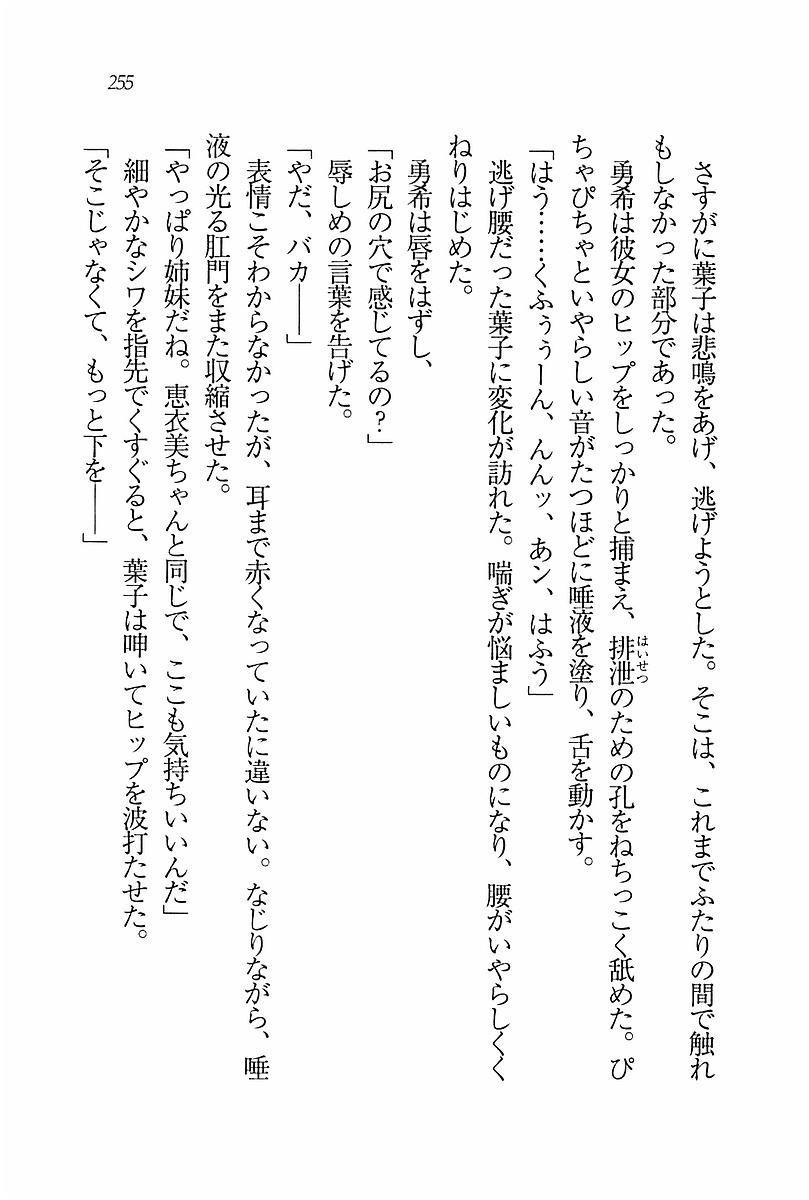 255
さすがに葉子は悲鳴をあげ、逃げようとした。そこは、これまでふたりの間で触れ
もしなかった部分であった。
勇希は彼女のヒップをしっかりと捕まえ、排泄のための孔をねちっこく舐めた。ぴ
はいせつ
ちゃぴちゃといやらしい音がたつほどに唾液を塗り、舌を動かす。
「はう……くふぅぅーん、んんッ、あン、はふう」
逃げ腰だった葉子に変化が訪れた。喘ぎが悩ましいものになり、腰がいやらしくく
ねりはじめた。
勇希は唇をはずし、
「お尻の穴で感じてるの?」
辱しめの言葉を告げた。
「やだ、バカ――」
表情こそわからなかったが、耳まで赤くなっていたに違いない。なじりながら、唾
液の光る肛門をまた収縮させた。
「やっぱり姉妹だね。恵衣美ちゃんと同じで、ここも気持ちいいんだ」
細やかなシワを指先でくすぐると、葉子は呻いてヒップを波打たせた。
「そこじゃなくて、もっと下を――」